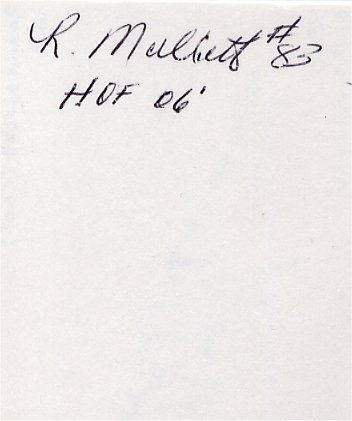 L. Malliett #83
HOF 06'